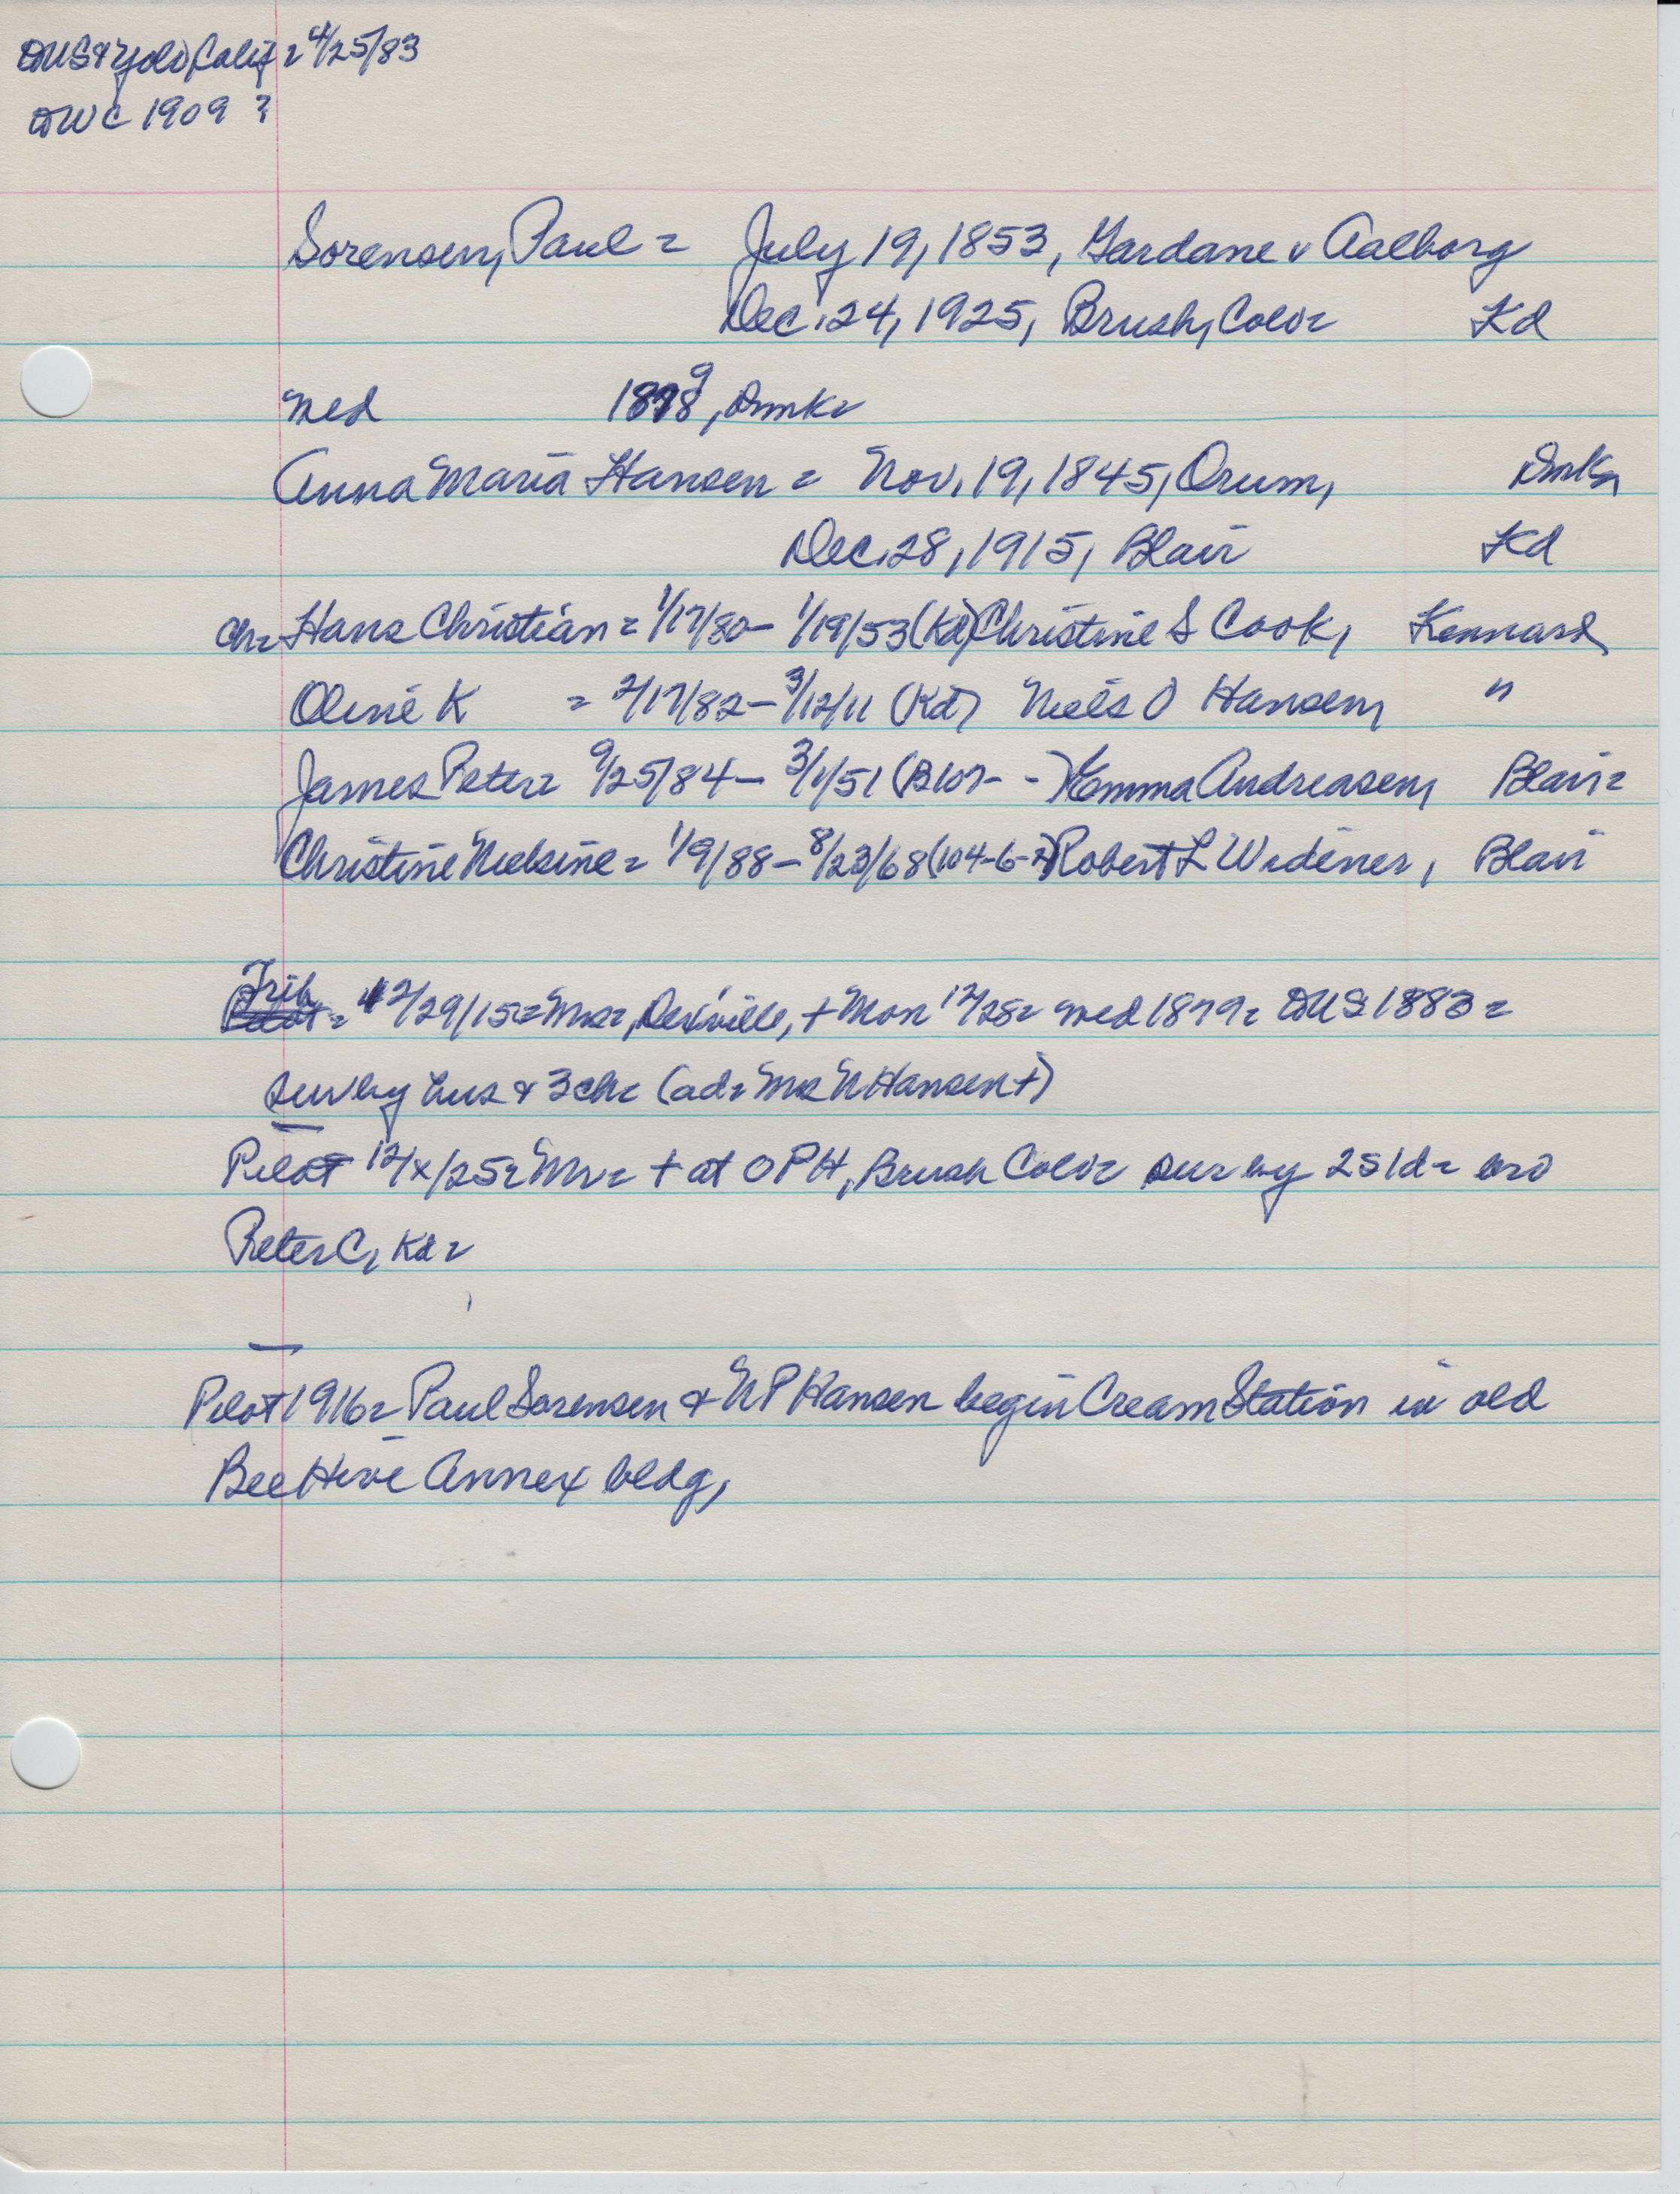 DUS & Yolo, Calif = 4/25/83
DWC 1909 ?
Sorensen, Paul = July 19, 1853, Gardane v Aalborg
Dec. 24, 1925, Brush, Colo = Kd
med 1879, Dmk
Anna Maria Hansen = Nov. 19, 1845, Orum, Dmk
Dec. 28, 1915, Blair Kd
ch = Hans Christian = 1/17/80 - 1/19/53 (Kd) Christine S Cook, Kennard
Oline K = 2/17/82 - 3/12/11 (Kd) Niels O Hansen, "
James Peter = 9/25/84 - 3/1/51 (B107- -) Emma Andreasen, Blair =
Christine Nielsine = 1/9/88 - 8/23/68 (104-6-2) Robert L Widener, Blair
Trib = 12/29/15 = Mrs =, + Mon 12/28 = med 1879 = DUS 1883 =
sur by hus & 3 ch = (ad = Mrs N Hansen +)
Pilot 12/x/25 = Mr = + at OPH, Brush Colo = sur by 2s 1d = bro
Peter C, Kd =
Pilot 1916 = Paul Sorensen & NP Hansen begin Cream Station in old
Bee Hive Annex bldg,